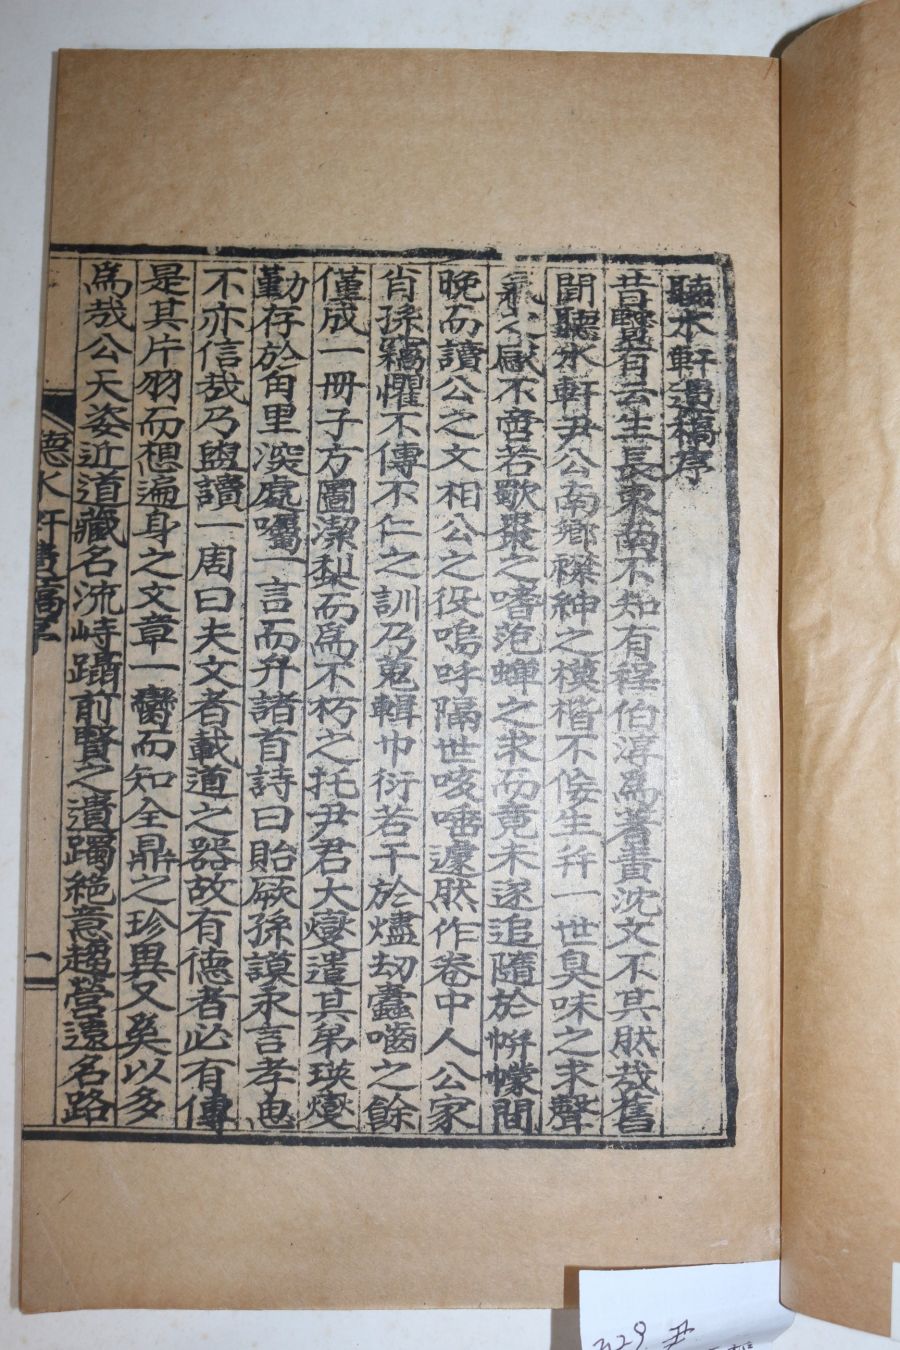 聽水軒遺稿序
昔賢有云生長東南不知有程伯淳爲著責沈文不其然哉舊
聞聽水軒尹公南鄕襟紳之模楷不佞生幷一世臭味之求聲
氣之猒不啻若歜棗之嗜范蟬之求而竟未遂追隨於帡幪間
晩而讀公之文相公之役嗚呼隔世咳唾遽然作卷中人公家
肖孫竊懼不傳不仁之訓乃蒐輯巾衍若干於燼劫蠹嚙之餘
僅成一冊子方圖潔梨而爲不朽之托尹君大燮遣其弟瑛燮
勤存於甪里深處囑一言而弁諸首詩曰貽厥孫謨永言孝也
不亦信哉乃盥讀一周曰夫文者載道之器故有德者必有傳
是其片羽而想遍身之文章一臠而知全鼎之珍異又奚以多
爲哉公天姿近道藏名流峙躡前賢之遺躅絶意趨營遠名路
聽水軒遺稿序
一
329 尹